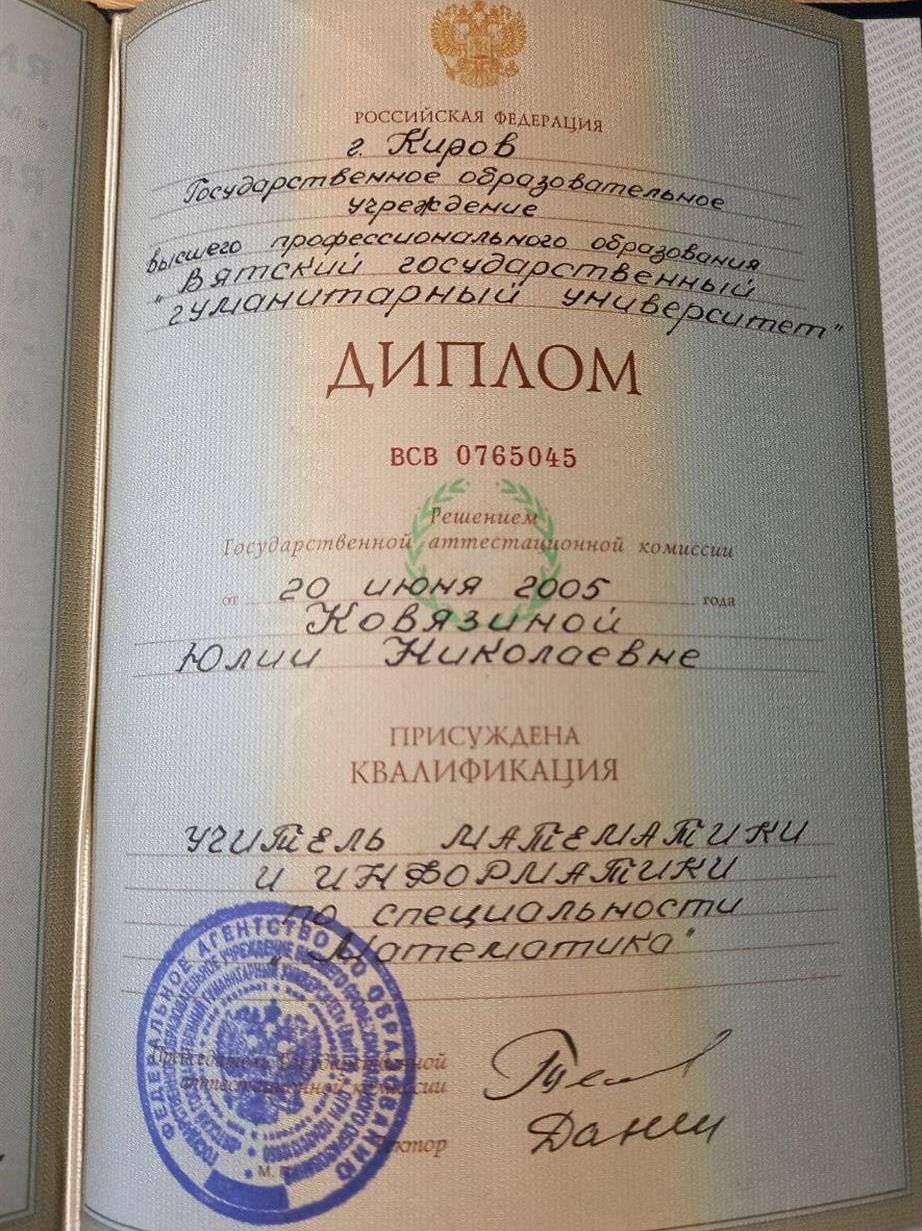 РОССИЙСКАЯ ФЕДЕРАЦИЯ
г. Киров
Государственное образовательное
учреждение
высшего профессионального образования
"Вятский государственный
гуманитарный университет"
ДИПЛОМ
ВСВ 0765045
Решением
Государственной аттестационной комиссии
от 20 июня 2005 года
Ковязиной
Юлии Николаевне
ПРИСУЖДЕНА
КВАЛИФИКАЦИЯ
УЧИТЕЛЬ МАТЕМАТИКИ
И ИНФОРМАТИКИ
по специальности
"Математика"
ФЕДЕРАЛЬНОЕ АГЕНТСТВО ПО ОБРАЗОВАНИЮ
Председатель Государственной
аттестационной комиссии
Ректор
М.